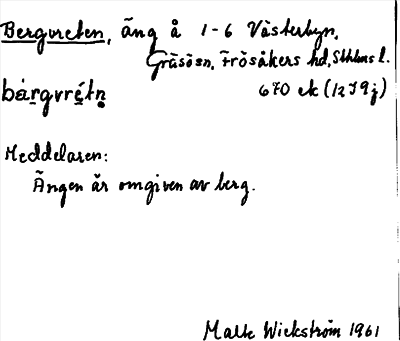 Bergvreten, äng å 1-6 Västerbyn,
Gräsösn, Frösåkers hd, Sthlms l.
bärgvrétn 670 ek (12J9j)
Meddelaren:
Ängen är omgiven av berg.
Malte Wickström 1961